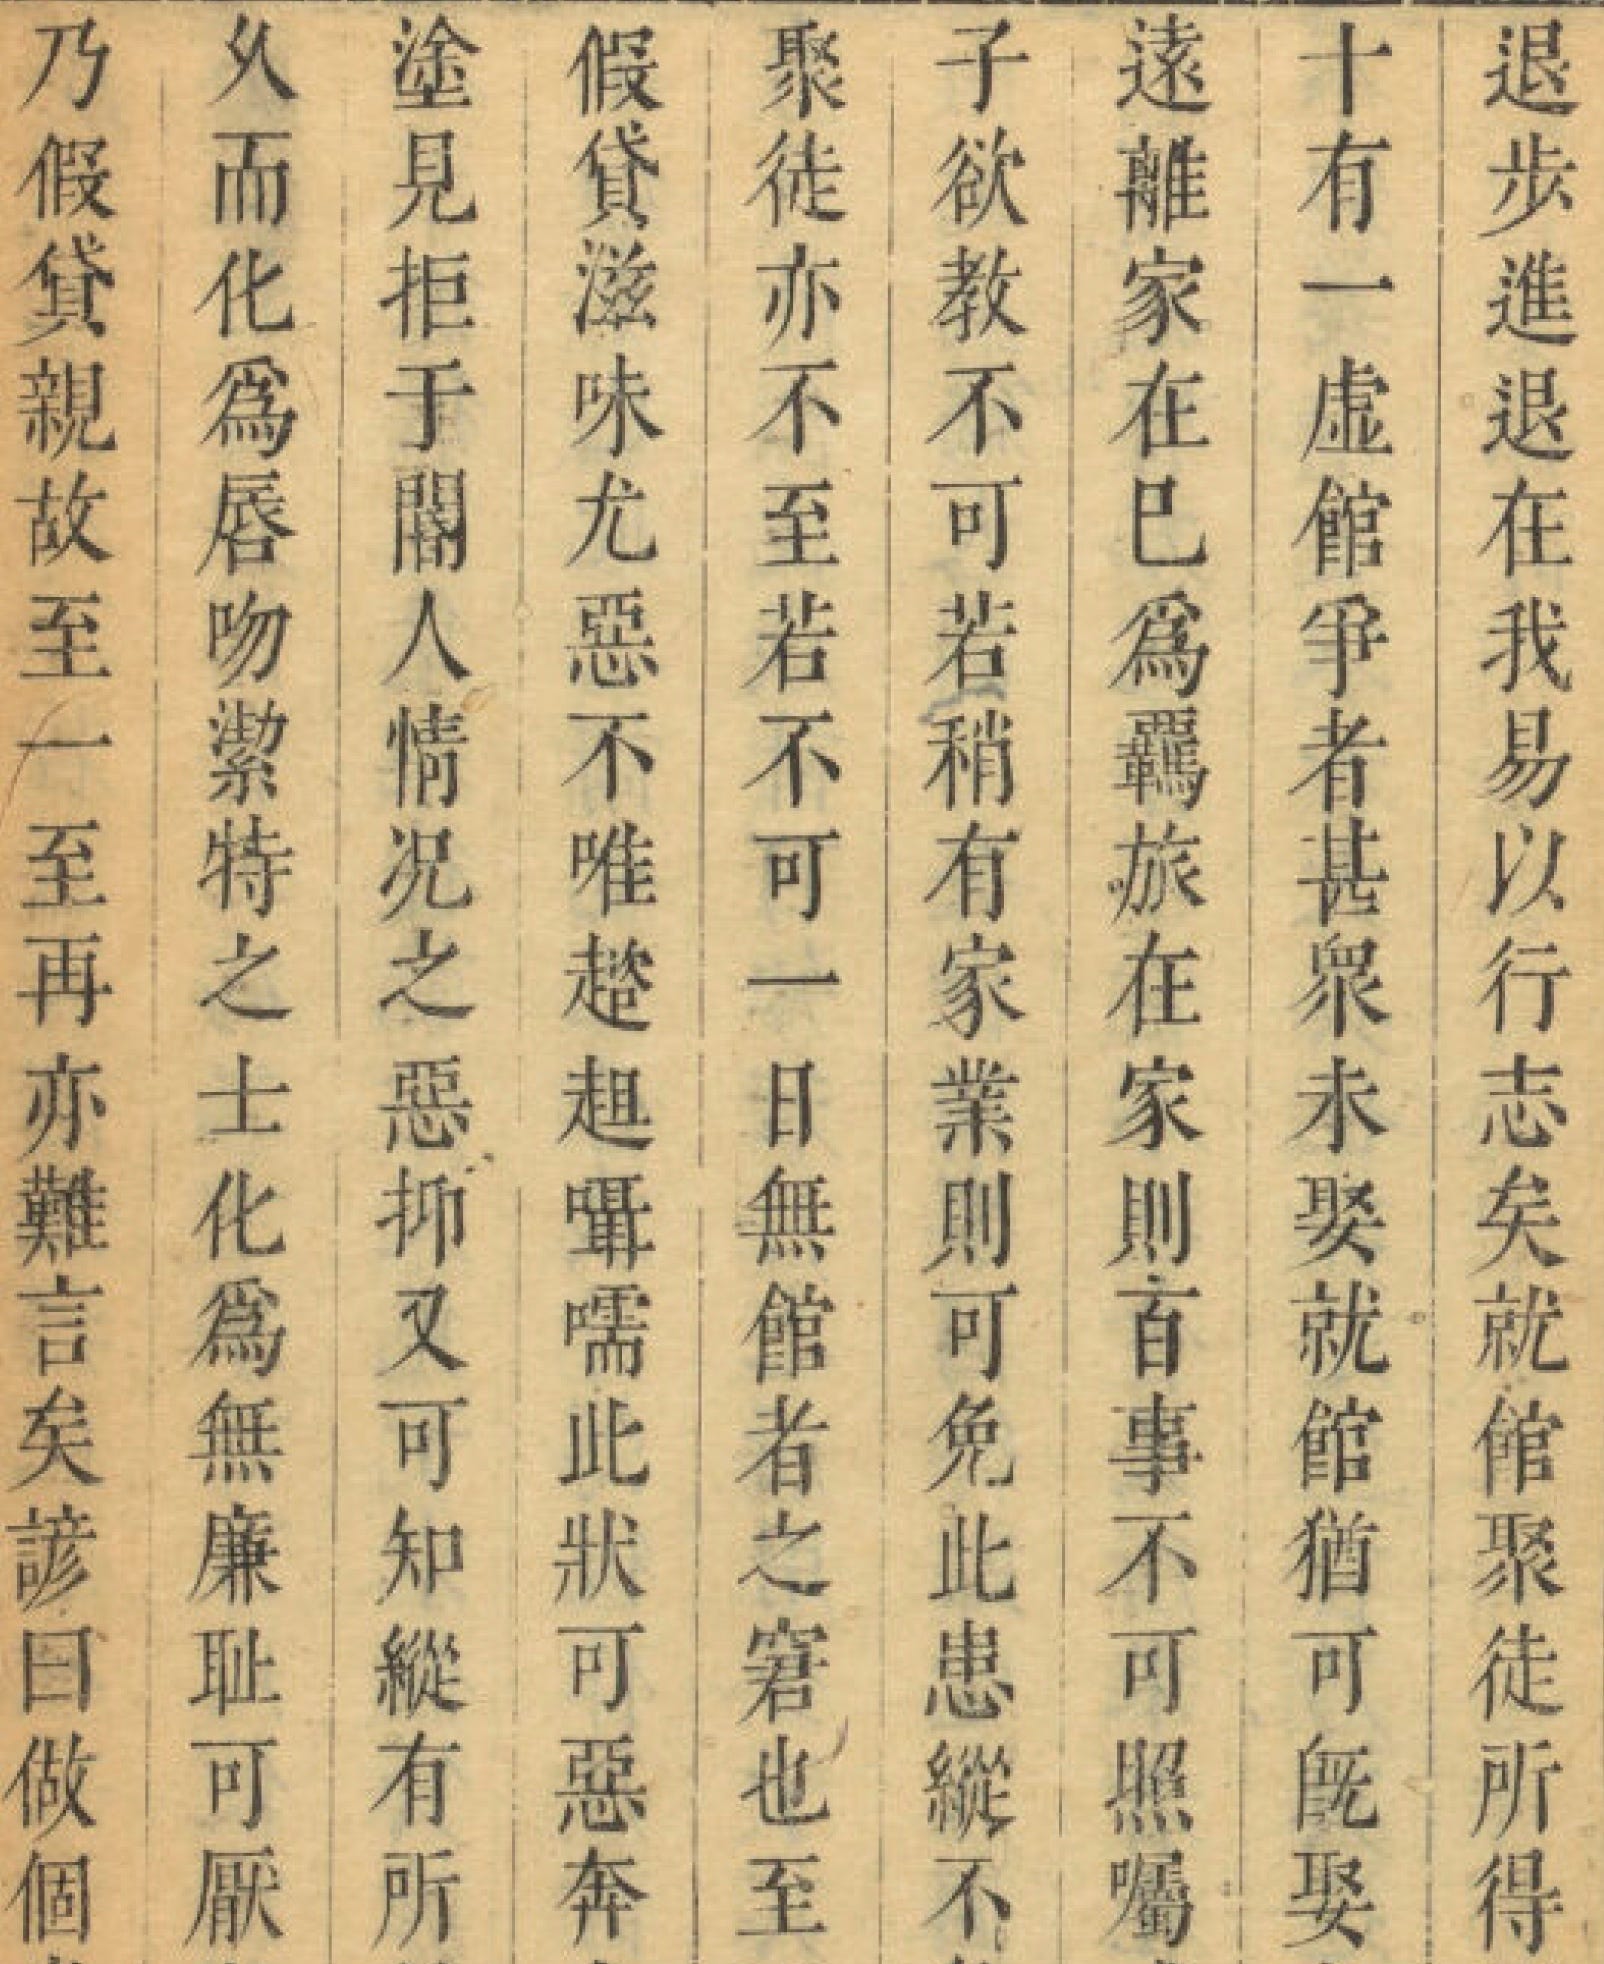 退步進退在我易以行志矣就館聚徒所得
十有一虛館爭者甚眾未娶就館猶可旣娶
遠離家在巳爲羈旅在家則百事不可照囑
子欲教不可若稍有家業則可免此患縱不
聚徒亦不至若不可一日無館者之窘也至
假貸滋味尤惡不唯趦趄囁嚅此狀可惡奔
塗見拒于閽人情况之惡抑又可知縱有所
乆而化爲唇吻㓗特之士化爲無廉耻可厭
乃假貸親故至一至再亦難言矣諺曰做個